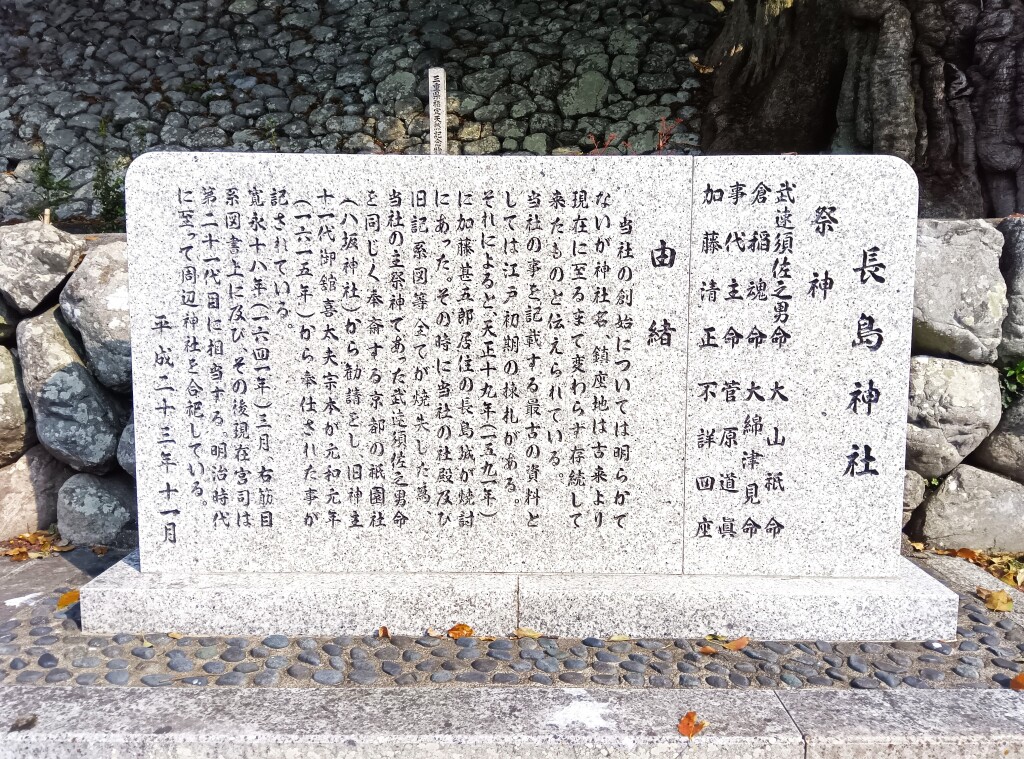 長島神社
祭神
武速須佐之男命 大山祇命
倉稲魂命 大綿津見命
事代主命 菅原道眞
加藤清正 不詳四座
由緒
当社の創始については明らかで
ないが神社名、鎮座地は古来より
現在に至るまで変わらず存続して
来たものと伝えられている。
当社の事を記載する最古の資料と
しては江戸初期の棟札がある。
それによると、天正十九年(一五九一年)
に加藤甚五郎居住の長島城が焼討
にあった。その時に当社の社殿及び
旧記系図等全てが焼失した為、
当社の主祭神であった武速須佐之男命
を同じく奉斎する京都の祇園社
(八坂神社)から勧請をし、旧神主
十一代御舘喜太夫宗本が元和元年
(一六一五年)から奉仕された事が
記されている。
寛永十八年(一六四一年)三月、右筋目
系図書上に及び、その後現在宮司は
第二十一代目に相当する。明治時代
に至って周辺神社を合祀している。
平成二十三年十一月
三重県指定天然記念物